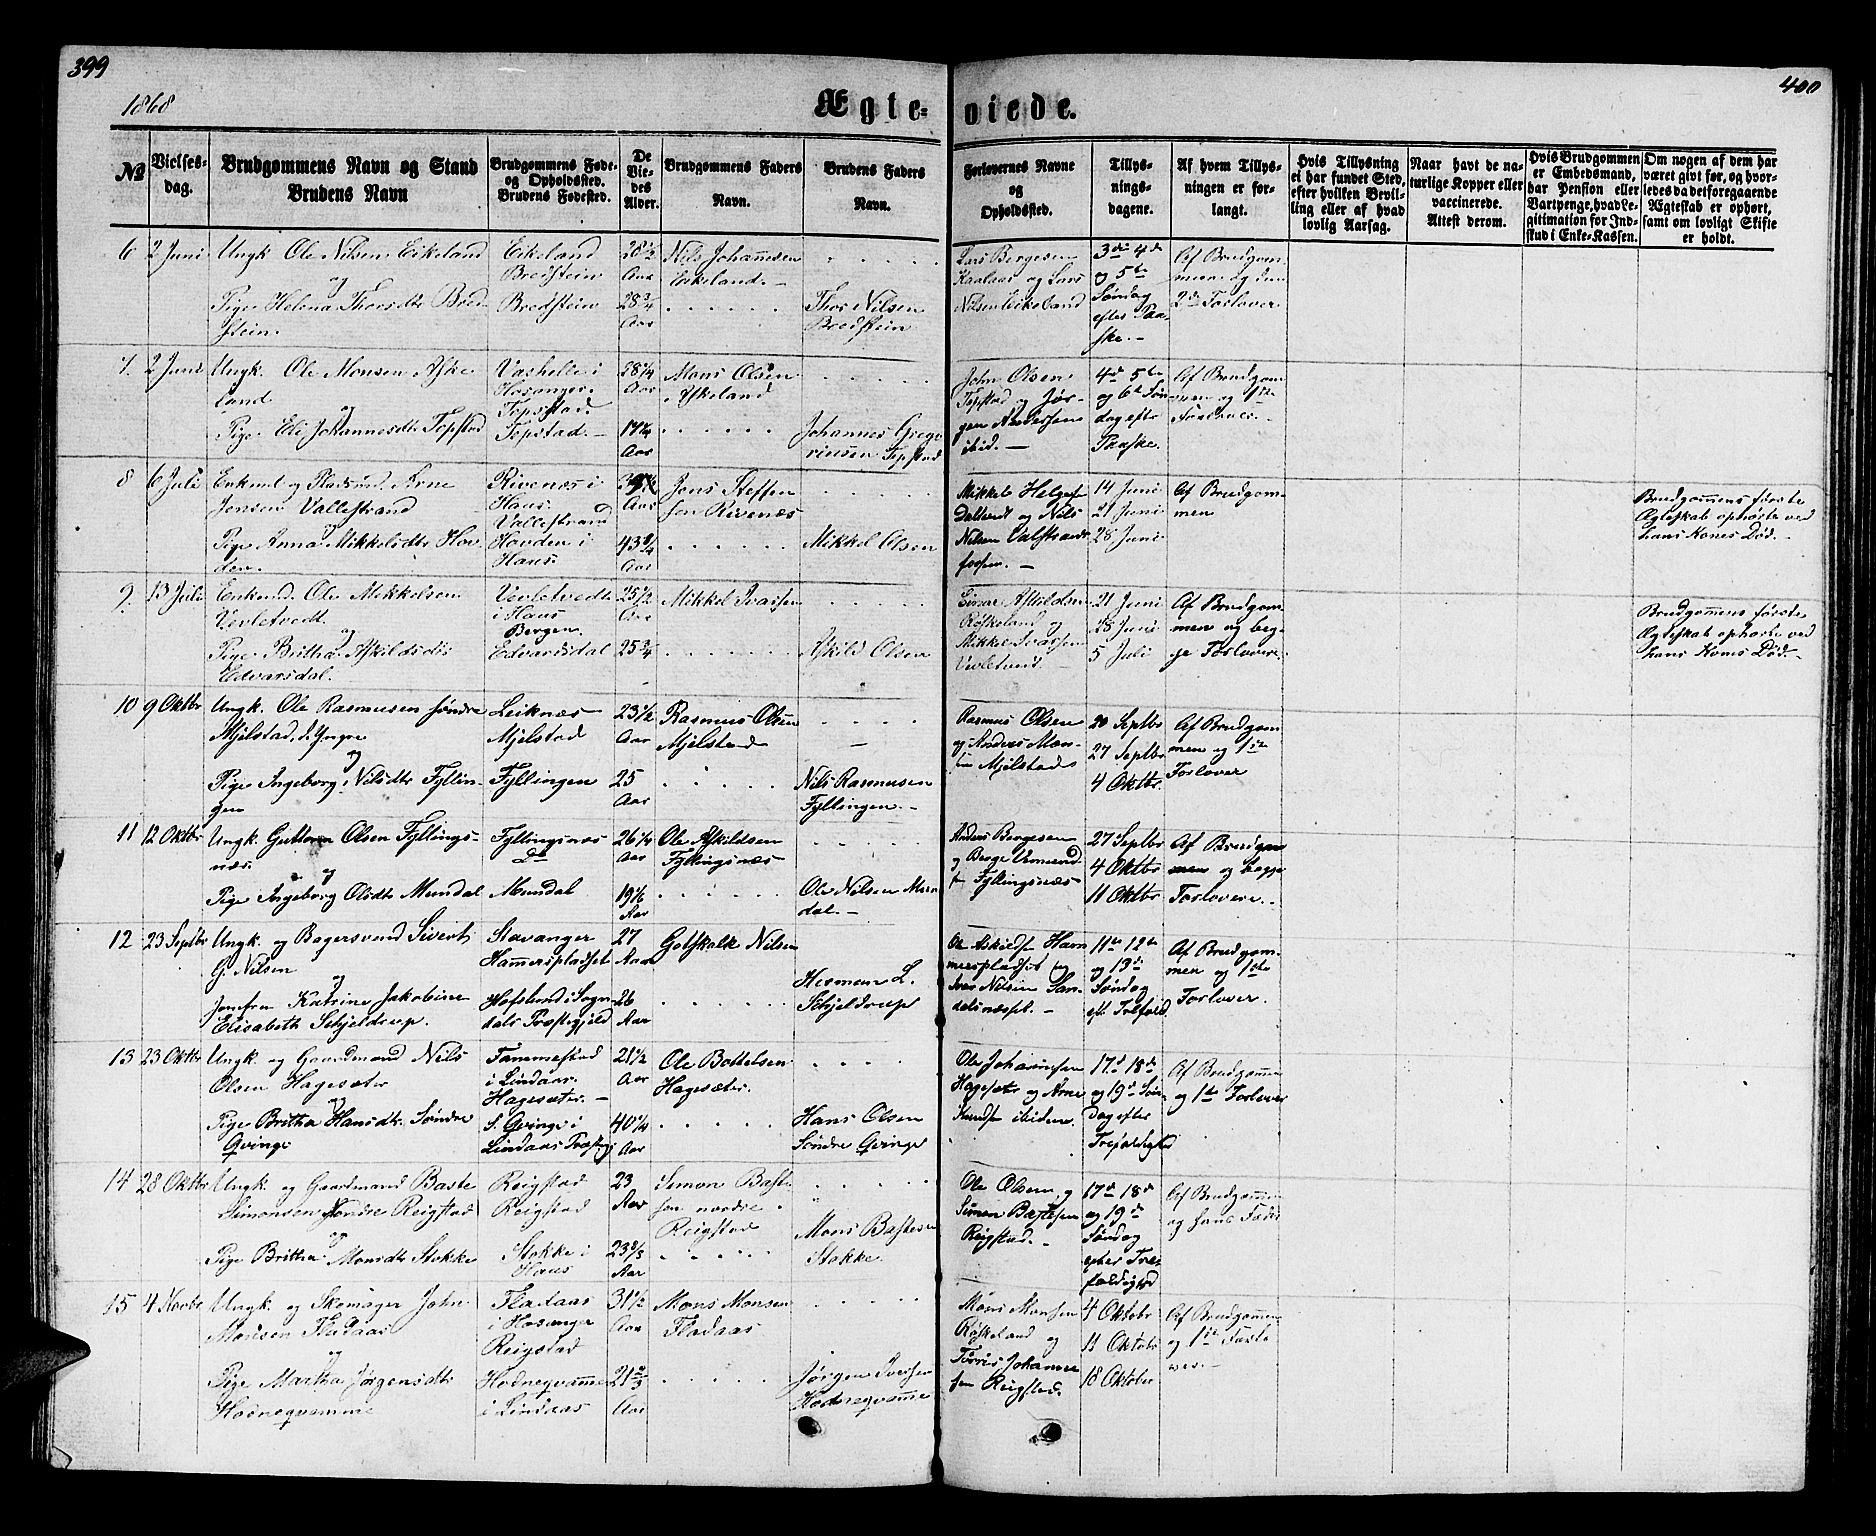 399
400
1868
Ægte-
viede.
No
Vielses-
dag.
Brudgommens Navn og Stand
Brudens Navn
Brudgommens Føde-
og Opholdssted.
Brudens Fødested.
De
Vie-
des
Alder.
Brudgommens Faders
Navn.
Brudens Faders
Navn.
Forlovernes Navne
og
Opholdssted.
Tillys-
nings-
dagene.
Af hvem Tillys-
ningen er for-
langt.
Hvis Tillysning
ei har fundet Sted,
efter hvilken Bevil-
ling eller af hvad
lovlig Aarsag.
Naar havt de na-
turlige Kopper eller
vaccinerede.
Attest derom.
Hvis Brudgommen
er Embedsmand,
har Pension eller
Vartpenge, hvad Le-
gitimation for Ind-
skud i Enke-Kassen.
Om nogen af dem har
været givt før, og hvor-
ledes da det foregaaende
Ægteskab er ophørt,
samt om lovligt Skifte
er holdt.
6
2 Juni
Ungk. Ole Nilsen Eikeland
og
Pige Helena Thorsdtr Bred-
stein.
Eikeland
Bredstein
Bredstein
28 1/2
Aar
28 3/4
Aar
Nils Johannesen
Eikeland.-
Thor Nilsen
Bredstein
Lars Bergesen
og Lars
Nilsen Eikeland
3de 4de
og 5te
Søndag
efter Paa-
ske.-
Af Brudgom-
mene og den
2den Forlover
7.
2 Juni
Ungk. Ole Monsen Aske-
land
og
Pige Eli Johannesdtr Topstad
Hosanger.
Topstad
Topstad.-
28 1/4
Aar
Aar
Mons Olsen
Askeland
Johannes Grego-
riusen Topstad
John Olsen
Topstad og Jør-
gen Andersen
ibid.-
4de 5te
og 6te Søn-
dag efter
Paaske.
Af Brudgom-
men og 1ste
Forlover.-
8
6 Juli
Enkmd og Pladsmd. Arne
Jensen Vallestrand
og
Pige Anna Mikkelsdtr Hov-
den.
Rivenæs i
Haus.
Vallestrand
Hovden i
Haus.
Aar
43 3/4
Aar
Jens Steffen-
sen Rivenæs
Mikkel Olsen
Mikkel Helges.
og Nils
Nilsen Valstrand-
fossen.-
14 Juni
21 Juni
28 Juni
Af Brudgom-
men
Brudgommens første
Ægteskab ophørte ved
hans Kones Død.-
9.
13 Juli
Enkmd. Ole Mikkelsen
Vevletvedt.
og
Pige Britha Askildsdtr
Edvarsdal.
Vevletvedt
i Haus
Bergen.
Edvardsdal
25 1/2
Aar
25 3/4
Mikkel Ivarsen
Askild Olsen
Einar Askildsen
Røskeland og
Mikkel Ivarsen
Vevletvedt.
21 Juni
28 Juni
5 Juli
Af Brudgom-
men og beg-
ge Forlovere.
Brudgommens første
Ægteskab ophørte ved
hans Kones Død.-
10
9 Oktbr
Ungk. Ole Rasmusen søndre
Mjelstad, d. Yngre
og
Pige Ingeborg Nilsdtr Fyllin-
gen
Leiknæs
Mjelstad
Fyllingen
23 1/2
Aar
25
Aar
Rasmus Olsen
Mjelstad
Nils Rasmusen
Fyllingen.-
Rasmus Olsen
og Anders Mon-
sen Mjelstad
20 Septbr
27 Septbr
4 Oktbr.
Af Brudgom-
men og 1ste
Forlover
11
12 Oktbr
Ungk. Guttorm Olsen Fyllings-
næs.
og
Pige Ingeborg Olsdtr Mundal
Fyllingsnæs
do
Mundal
26 1/4
Aar
19 1/6
Aar
Ole Askildsen
Fyllingsnæs
Ole Nilsen Mun-
dal.-
Anders Bergesen
og Berge
Fyllingsnæs
27 Septbr
4 Oktbr
11 Oktbr
Af Brudgom-
men og begge
Forlovere.-
12
23 Septbr
Ungk. og Bagersvend Sivert
G. Nilsen
og
Jomfru Katrine Jakobine
Elisabeth Schjeldrup.
Stavanger
Hammerspladset
Hofslund i Sogn-
dals Præstegjeld
27
Aar
26
Aar
Gotskalk Nilsen
Herman L.
Schjeldrup
Ole Askilds. Ham-
merspladset og
Iver Nilsen
11te 12te
og 13de
Søndag
eft. Trefold.
Af Brudgom-
men og 1ste
Forlover.
13
23 Oktbr
Ungk. og Gaardmand Nils
Olsen Hagesæter
og
Pige Britha Hansdtr. Søndre
Qvinge
Tammestad
i Lindaas.
Hagesæter.-
S. Qvinge i
Lindaas Præstegj
21 1/2
Aar
40 1/4
Aar
Ole Bottelsen
Hagesæter.
Hans Olsen
Søndre Qvinge
Ole Johannesen
Hagesæter og Arne
Knuds. ibidem.
17de 18de
og 19de Søn-
dag efter
Trefoldighed
Af Brudgommen
og 1ste Forlover
14
28 Oktbr
Ungk. og Gaardmand Baste
Simonsen Nordre Reigstad
og
Pige Britha Monsdtr Stokke
Reigstad
Reigstad
Stokke i
Haus
23
Aar
23 2/3
Aar
Simon Baste-
sen nordre
Reigstad
Mons Bastesen
Stokke
Ole Olsen og
Simon Bastesen
Reigstad.-
17de 18de
og 19de
Søndag
efter Tre-
foldighed
Af Brudgommen
og hans Fader
15
4 Novbr
Ungk. og Skomager John
Monsen Fladaas
og
Pige Martha Jørgensdtr
Hodneqvamme
Fladaas
i Hosanger
Reigstad
Hodneqvamme
i Lindaas
31 1/2
Aar
21 2/3
Aar
Mons Monsen
Fladaas
Jørgen Iversen
Hodneqvamme
Mons Monsen
Røskeland og
Torris Johanne-
sen Reigstad.
4 Oktobr
11 Oktobr
18 Oktober
Af Brudgommen
og 1ste Forlo-
ver.-